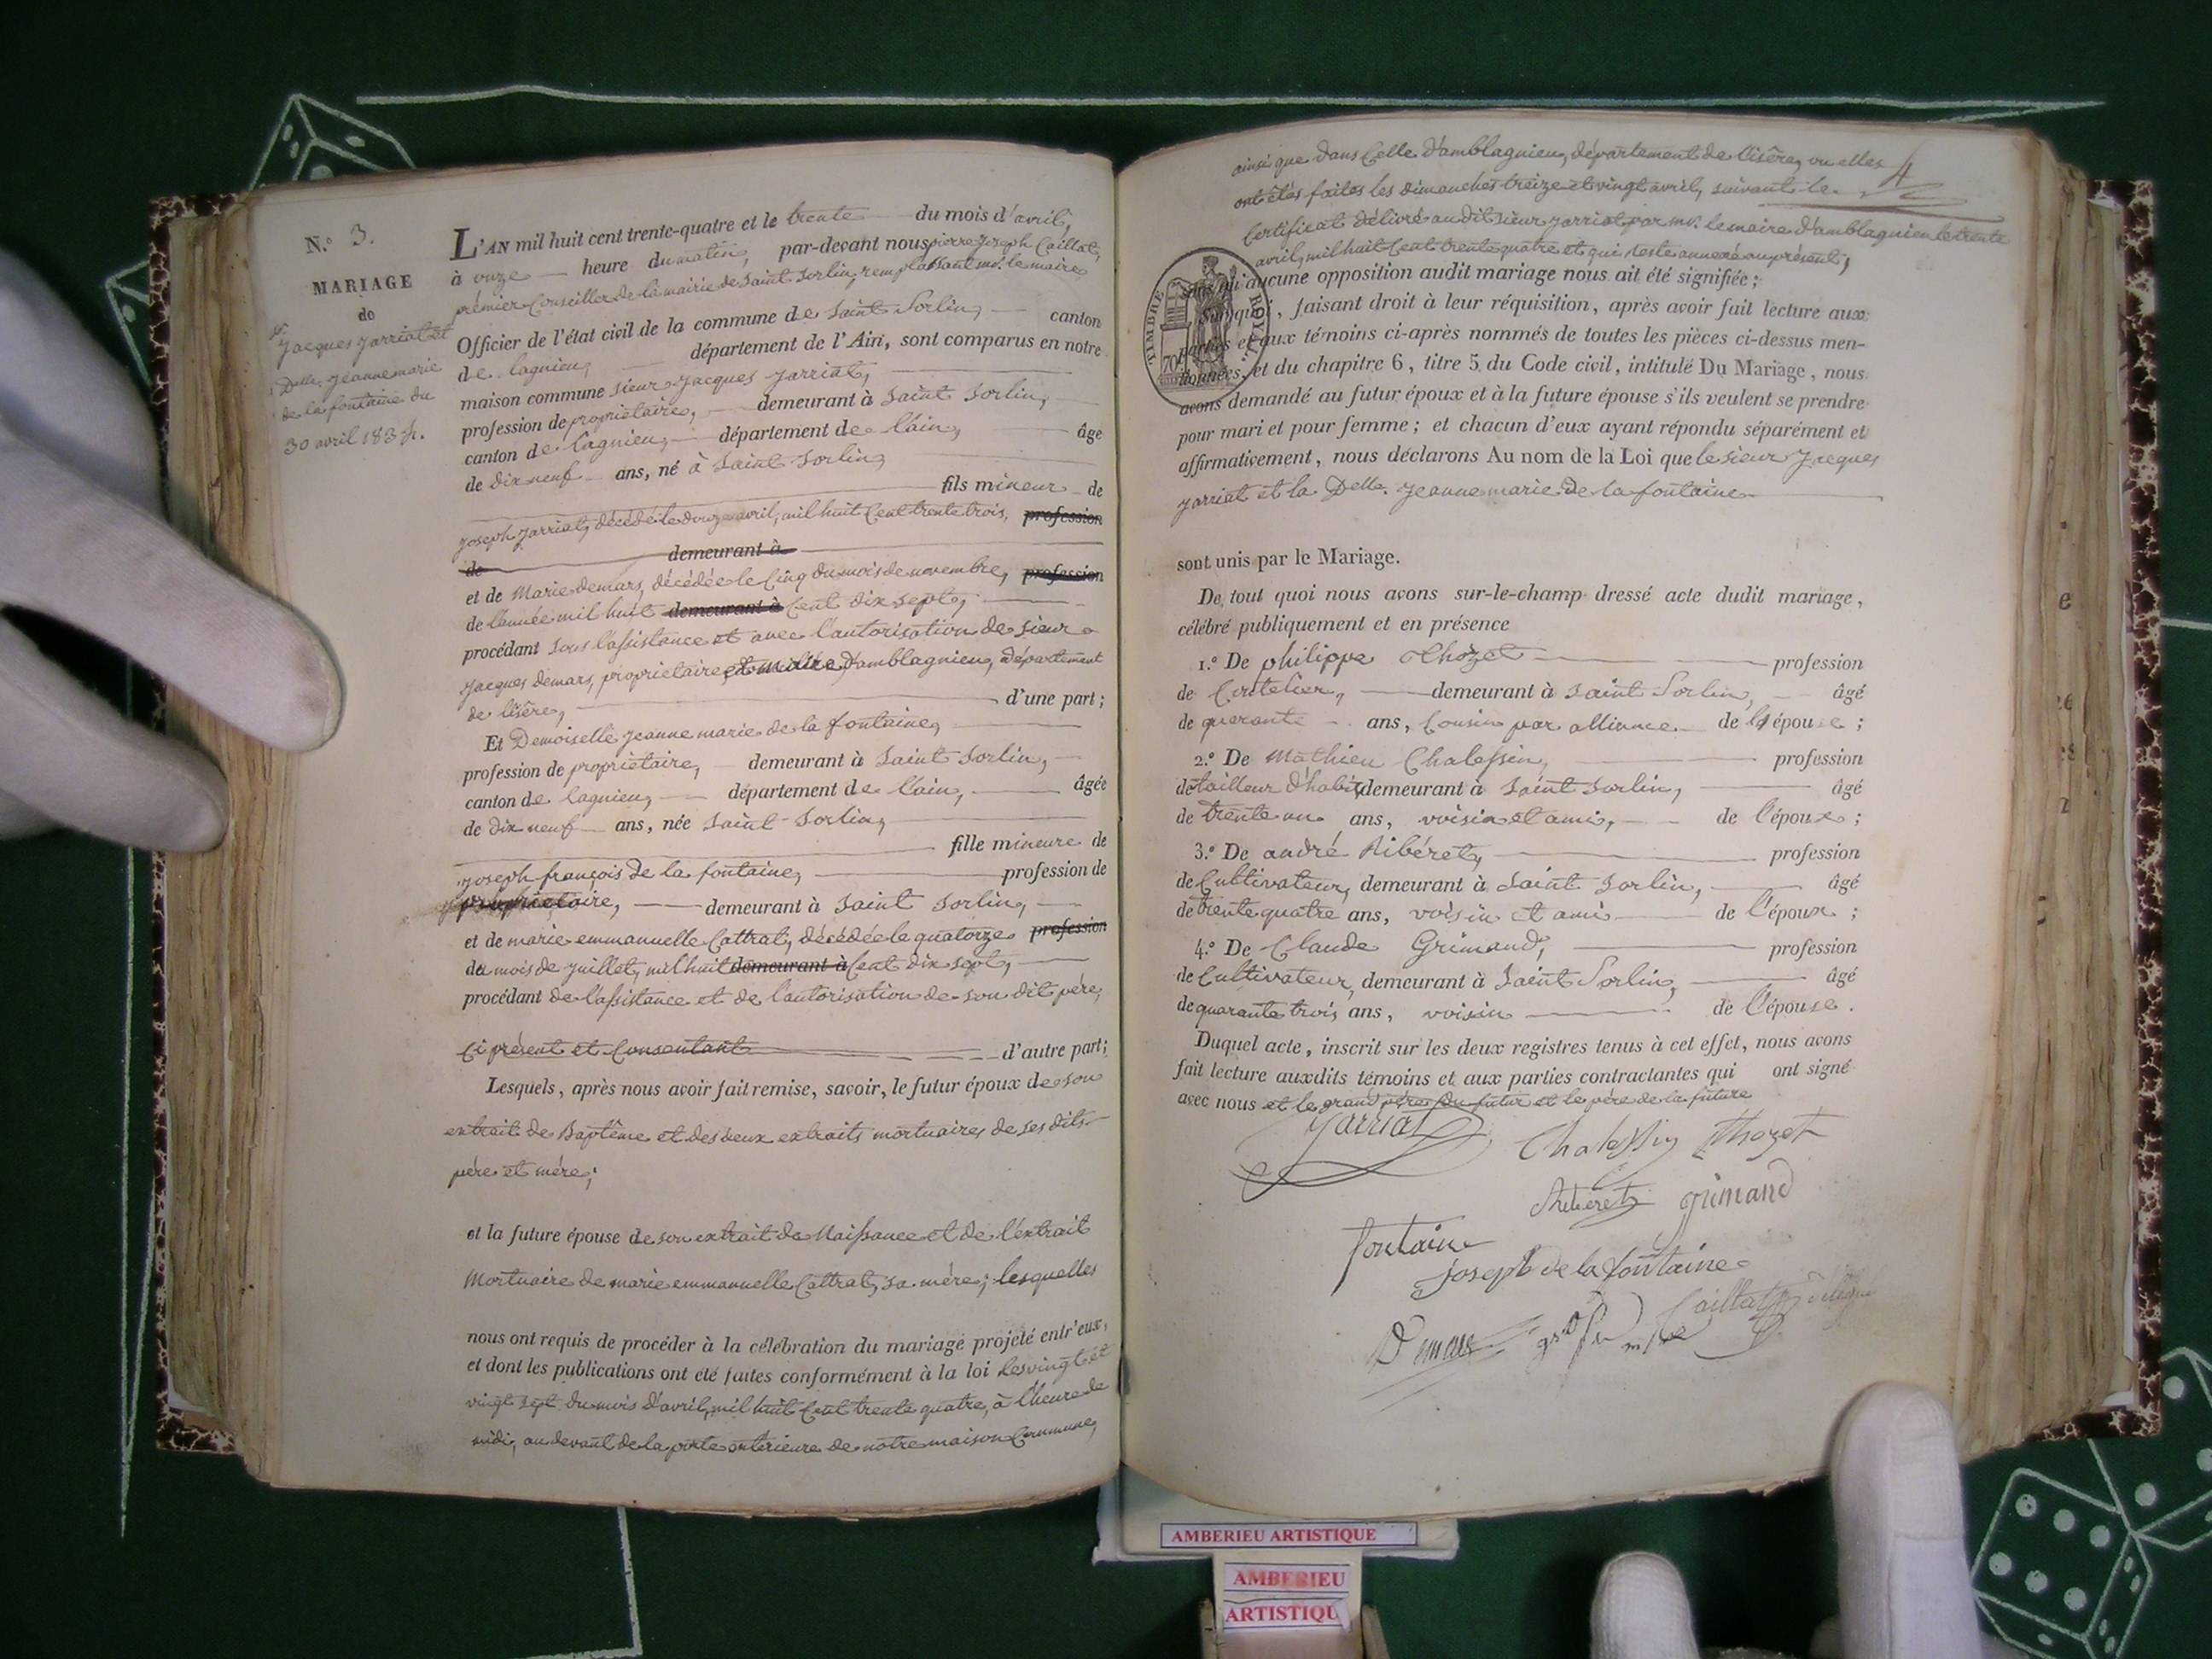 N.° 3.
MARIAGE
de
Sr. Jacques Jarriat et
Delle. Jeanne marie
de la fontaine du
30 avril 1834.
L'AN mil huit cent trente-quatre et le trente du mois d'avril,
à onze heure du matin, par-devant nous pierre Joseph Caillat,
prémier Conseiller de la mairie de Saint Sorlin, remplassant mr. le maire
Officier de l'état civil de la commune de Saint Sorlin, canton
de lagnieu, département de l'Ain, sont comparus en notre
maison commune sieur Jacques Jarriat,
profession de propriétaire, demeurant à Saint Sorlin,
canton de lagnieu, département de l'ain, âgé
de dix neuf ans, né à Saint Sorlin,
fils mineur de
Joseph Jarriat, décédé le douze avril, mil huit Cent trente trois, profession
de demeurant à
et de Marie demars, décédée le Cinq du mois de novembre, profession
de l'année mil huit demeurant à Cent dix sept,
procédant sous l'assistance et avec l'autorisation de sieur
Jacques demars, propriétaire d'amblagnieu, département
de l'isère, d'une part ;
Et Demoiselle Jeanne marie de la fontaine,
profession de propriétaire, demeurant à Saint Sorlin,
canton de lagnieu, département de l'ain, âgée
de dix neuf ans, née Saint Sorlin,
fille mineure de
Joseph françois de la fontaine, profession de
propriétaire, demeurant à Saint Sorlin,
et de marie emmanuelle Cattrat, décédée le quatorze profession
du mois de juillet, mil huit demeurant à Cent dix sept,
procédant de l'assistance et de l'autorisation de son dit père,
Ci présent et Consentant d'autre part ;
Lesquels, après nous avoir fait remise, savoir, le futur époux de son
extrait de Baptême et des deux extraits mortuaires de ses dits
père et mère ;
et la future épouse de son extrait de Naissance et de l'extrait
Mortuaire de marie emmanuelle Cattrat, sa mère ; lesquelles
nous ont requis de procéder à la célébration du mariage projeté entr'eux,
et dont les publications ont été faites conformément à la loi les vingt et
vingt sept du mois d'avril, mil huit Cent trente quatre, à l'heure de
midi, au devant de la porte extérieure de notre maison Commune,
4
ainsi que dans Celle d'amblagnieu, département de l'isère, ou elles
ont étés faites les dimanches treize et vingt avril, suivant le
Certificat délivré au dit sieur Jarriat par mr. le maire d'amblagnieu le trente
avril, mil huit Cent trente quatre et qui reste annexé au présent,
sans qu'aucune opposition audit mariage nous ait été signifiée ;
Sur quoi, faisant droit à leur réquisition, après avoir fait lecture aux
parties et aux témoins ci-après nommés de toutes les pièces ci-dessus men-
tionnées, et du chapitre 6, titre 5 du Code civil, intitulé Du Mariage, nous
avons demandé au futur époux et à la future épouse s'ils veulent se prendre
pour mari et pour femme ; et chacun d'eux ayant répondu séparément et
affirmativement, nous déclarons Au nom de la Loi que le sieur Jacques
Jarriat et la Delle. Jeanne marie de la fontaine
TIMBRE ROYAL
70
sont unis par le Mariage.
De tout quoi nous avons sur-le-champ dressé acte dudit mariage,
célébré publiquement et en présence
1.° De philippe Thozet profession
de Coutelier, demeurant à Saint Sorlin, âgé
de quarante ans, Cousin par alliance de l'épouse ;
2.° De Mathieu Chalessin, profession
de tailleur d'habits, demeurant à Saint Sorlin, âgé
de trente un ans, voisin et ami, de l'époux ;
3.° De andré Ribéret, profession
de Cultivateur, demeurant à Saint Sorlin, âgé
de trente quatre ans, voisin et ami de l'époux ;
4.° De Claude Grimand, profession
de Cultivateur, demeurant à Saint Sorlin, âgé
de quarante trois ans, voisin de l'épouse.
Duquel acte, inscrit sur les deux registres tenus à cet effet, nous avons
fait lecture auxdits témoins et aux parties contractantes qui ont signé
avec nous et le grand père du futur et le père de la future
Jarriat
Chalessin Thozet
Ribéret grimand
fontaine
joseph de la fontaine
Caillat délégué
Demars
AMBERIEU ARTISTIQUE
AMBERIEU
ARTISTIQU